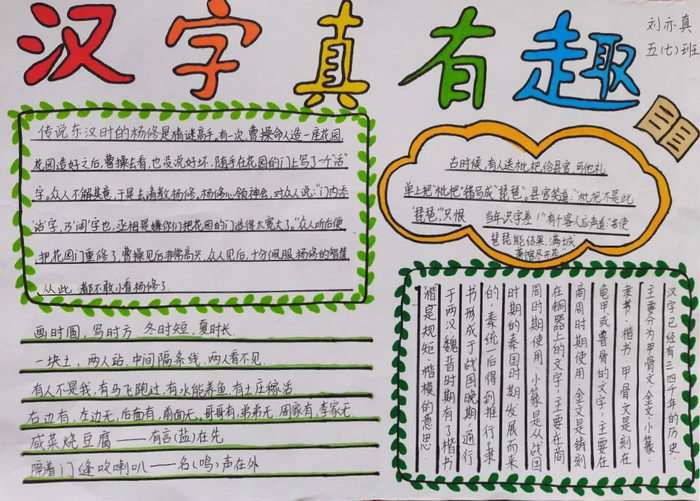 汉字真有趣
刘亦真
五(七)班
传说东汉时的杨修是猜谜高手,有一次,曹操命人造一座花园
花园造好之后,曹操去看,也没说好坏,随手在花园的门上写了一个"活"
字,众人不解其意,于是去请教杨修,杨修心领神会,对众人说:"门内添
活字,乃'阔'字也,丞相是嫌你们把花园的门造得太宽大了。"众人听后便
把花园门重修了,曹操见后非常高兴,众人见后,十分佩服杨修的智慧
,从此,都不敢小看杨修了
古时候,有人送枇杷给县官,可他礼
单上把"枇杷"错写成"琵琶"。县官笑道:"枇杷不是此
"琵琶",只恨
当年识字差!"有个客人应声道:"若使
琵琶能结果,满城
箫管尽开花
画时圆,写时方,冬时短,夏时长
一块土,两人站,中间隔条线,两人看不见
有人不是我,有马飞跑过,有水能养鱼,有土庄稼活
右边有,左边无,后面有,前面无,哥哥有,弟弟无,周家有,李家无
咸菜烧豆腐——有言(盐)在先
隔着门缝吹喇叭——名(鸣)声在外
汉字已经有三四千年的历史
主要分为甲骨文,金文,小篆,
隶书,楷书,甲骨文是刻在
龟甲或兽骨的文字,主要在
商周时期使用,金文是铸刻
在铜器上的文字,主要在商
周时期使用,小篆是从战国
时期的秦国时期发展而来
的,秦统一后得到推行隶
书形成于战国晚期,通行
于两汉,魏晋时期有了楷书
楷是规矩,楷模的意思